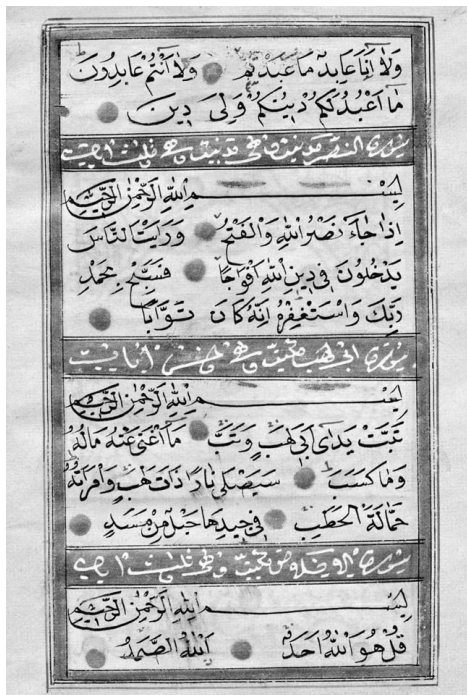 وَلَا أَنَا عَابِدٌ مَا عَبَدْتُمْ وَلَا أَنْتُمْ عَابِدُونَ
مَا أَعْبُدُ لَكُمْ دِينُكُمْ وَلِيَ دِينِ
سورة النصر
بِسْمِ اللهِ الرَّحْمٰنِ الرَّحِيمِ
إِذَا جَاءَ نَصْرُ اللهِ وَالْفَتْحُ وَرَأَيْتَ النَّاسَ
يَدْخُلُونَ فِي دِينِ اللهِ أَفْوَاجًا فَسَبِّحْ بِحَمْدِ
رَبِّكَ وَاسْتَغْفِرْهُ إِنَّهُ كَانَ تَوَّابًا
سورة ابي لهب مكية وهي خمس ايات
بِسْمِ اللهِ الرَّحْمٰنِ الرَّحِيمِ
تَبَّتْ يَدَا أَبِي لَهَبٍ وَتَبَّ مَا أَغْنَى عَنْهُ مَالُهُ
وَمَا كَسَبَ سَيَصْلَى نَارًا ذَاتَ لَهَبٍ وَامْرَأَتُهُ
حَمَّالَةَ الْحَطَبِ فِي جِيدِهَا حَبْلٌ مِنْ مَسَدٍ
سورة الاخلاص مكية وهي
بِسْمِ اللهِ الرَّحْمٰنِ الرَّحِيمِ
قُلْ هُوَ اللهُ أَحَدٌ اللهُ الصَّمَدُ